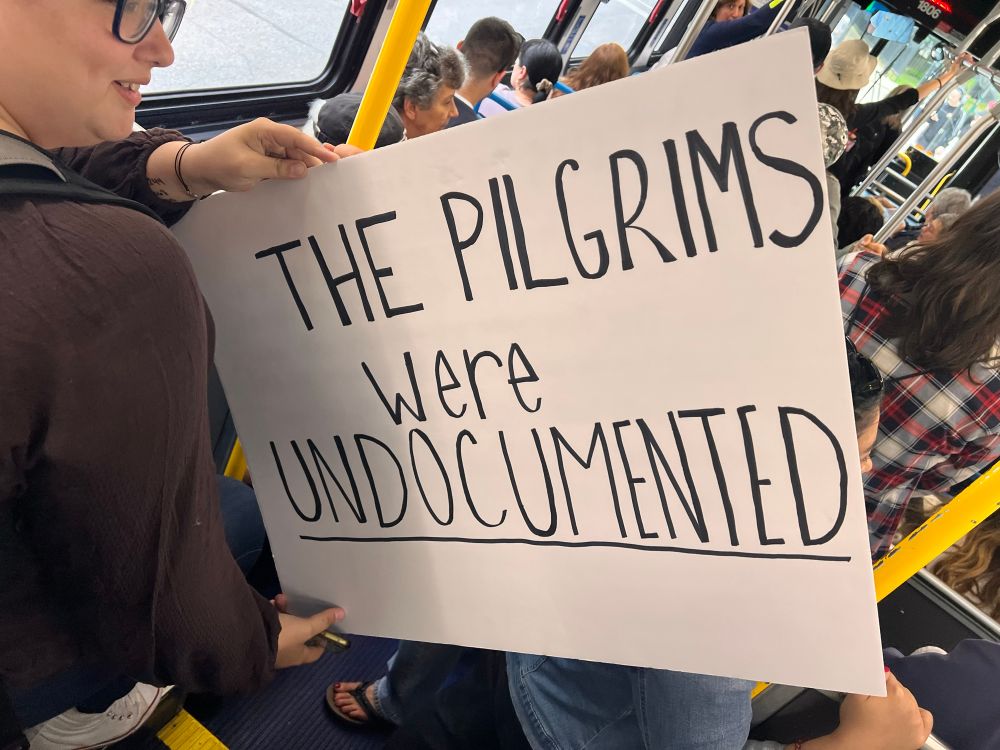 1806
THE PILGRIMS
were
UNDOCUMENTED